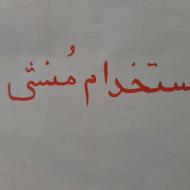 ستخدام مُنشی